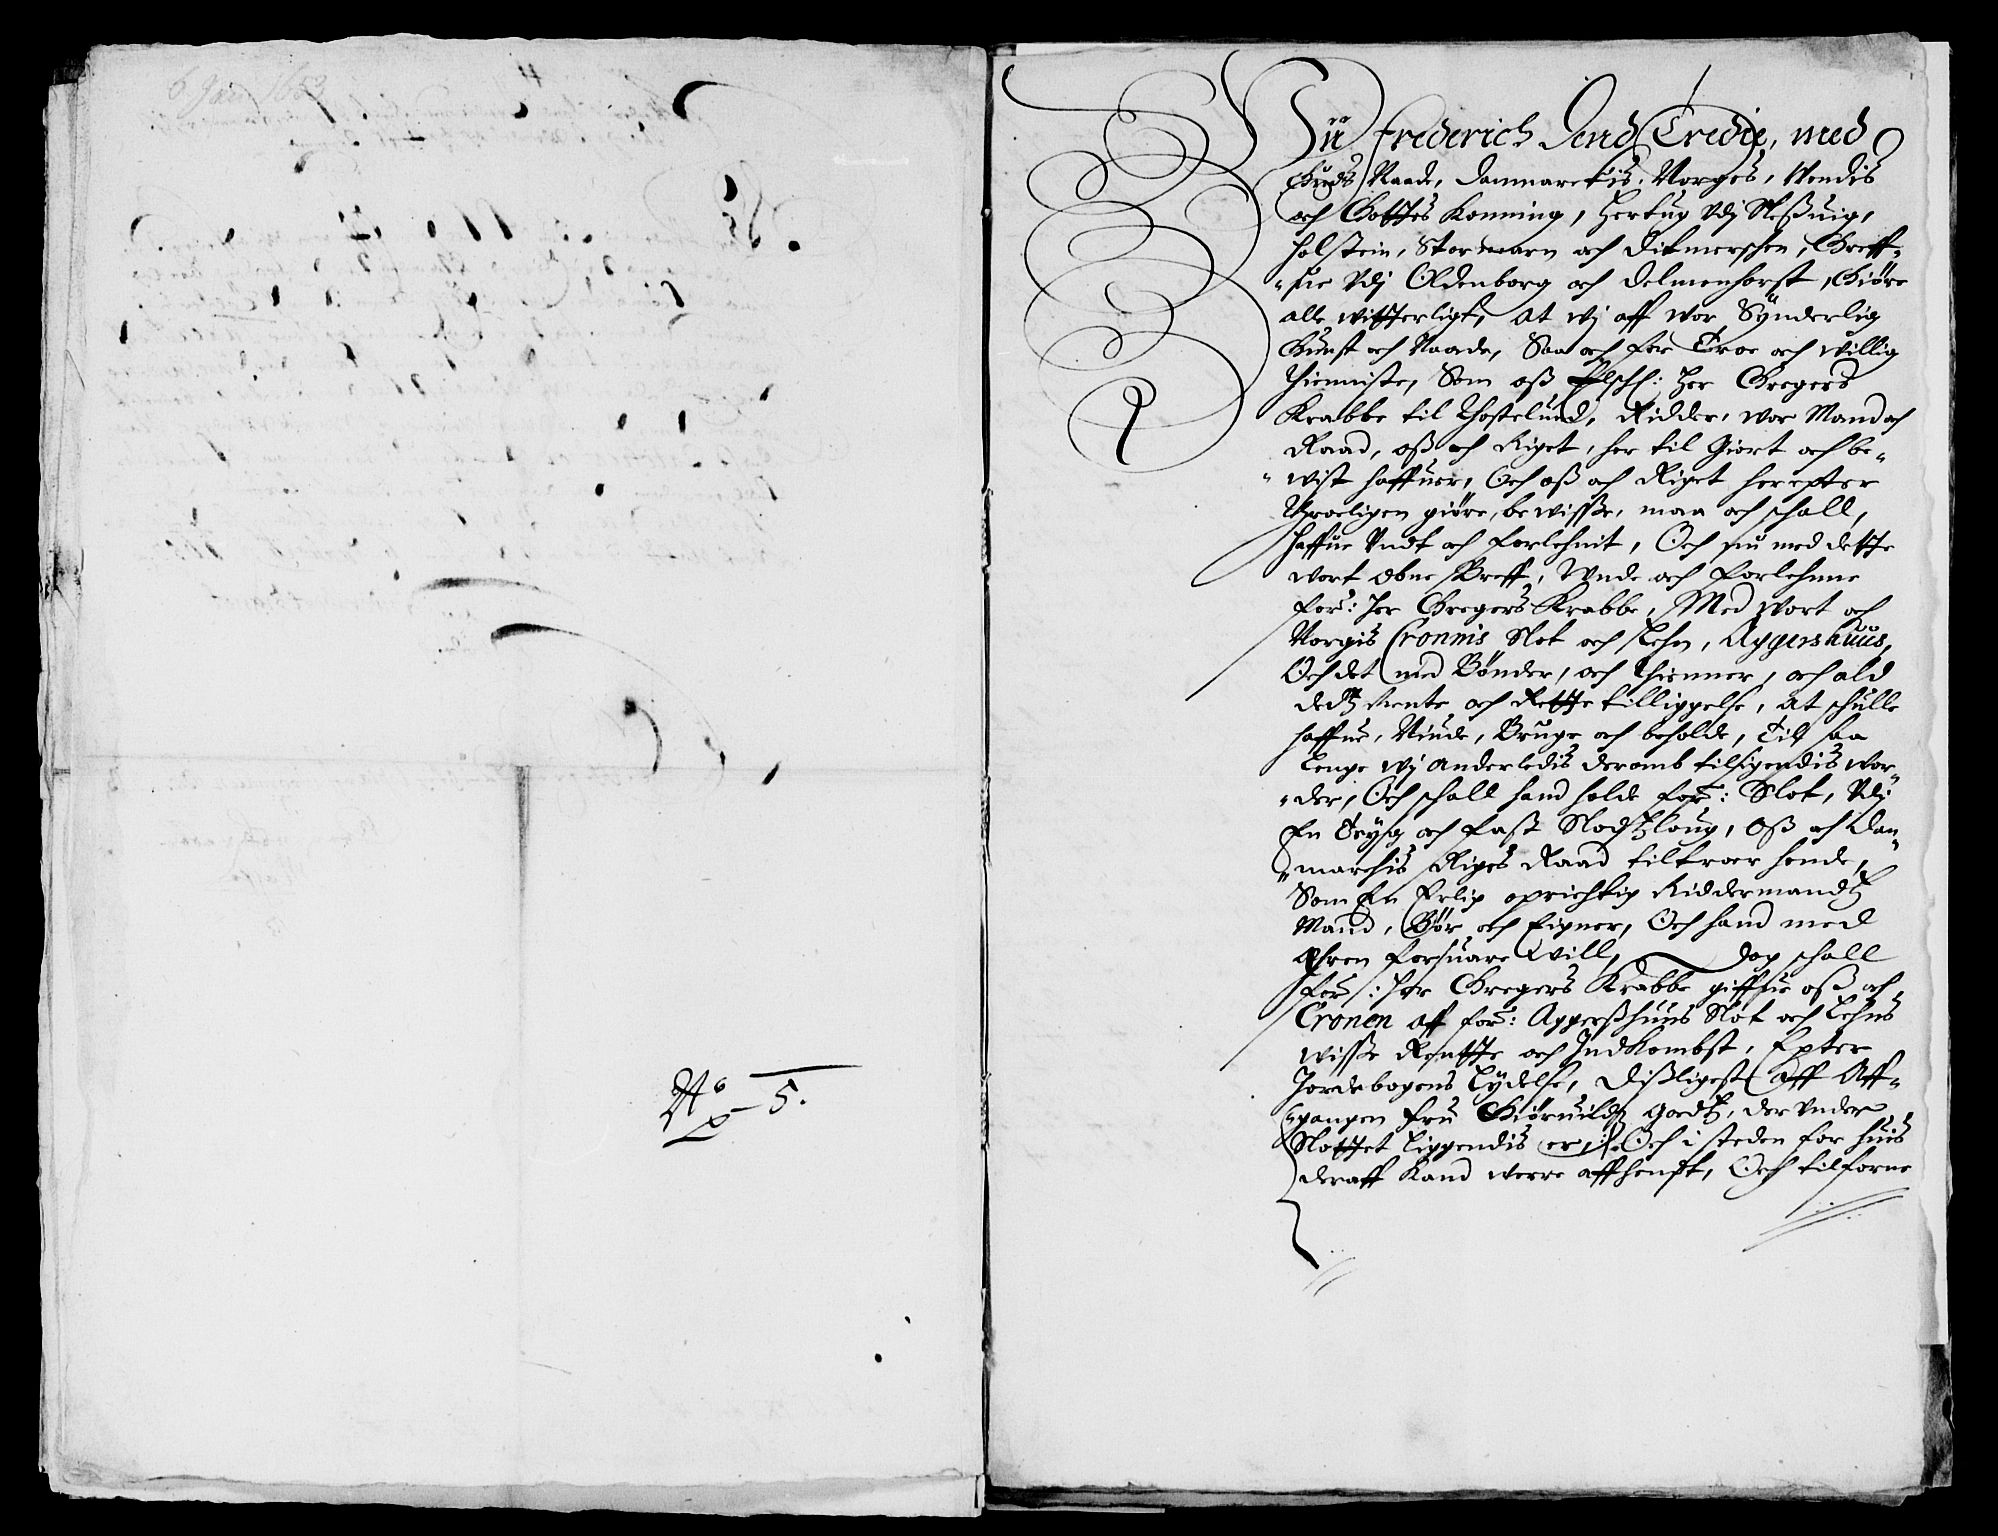 6 Jan 1653
No 5.
Wii Frederich Dend Tredie, med
Guds Naade, Danmarckis, Norges, Wendis
och Gottes Konning, Hertug vdj Sleßuig,
Holstein, Stormarn och Ditmerschen, Greff-
ue vdj Oldenborg och Delmenhorst, Giöre
alle witterligt, At wj aff wor Sÿnderlig
Gunst och Naade, Saa och for Troe och willig
Thienniste, Som oß Elschl: Her Gregers
Krabbe til Thostelund, Ridder, wor Mand och
Raad, oß och Riget, her til Giort och be-
wist haffuer, Och oß och Riget herefter
Throeligen giöre, bewisse, maa och schall,
Haffue Vndt och forlehnit, Och nu med dette
wort obne Breff, Vnde och forlehnne
for: Her Gregers Krabbe, Med wort och
Norgis Cronnis Slot och Lehn, Aggershuus,
Och det med Bönder, och Thienner, och ald
dedtz Rente och Rette tilliggelse, at schulle
haffue, Niude, Bruge och beholde, Til saa
lenge wj Anderledis deromb tilsigendis wor-
der, Och schall hand holde for: Slot, vdj
En Trÿg och fast Slodtzloug, Oß och Dan-
marchis Riges Raad til troer hende,
Som En Erlig oprichtig Riddermandtz
Mand, Bör och Eigner, Och hand med
Ähren forsuare will, dog schall
for: Her Gregers Krabbe giffue oß och
Cronen aff for: Aggerßhuus Slot och Lehns
wisse Rentte och Indkombst, Epter
Jordebogens Lÿdelse, Dißligest aff Aff-
gangen fru Giöruildtz Godtz, der vnder
Slottet liggendis er, Och i steden for huis
deraff Kand werre affhenft, Och tilforne